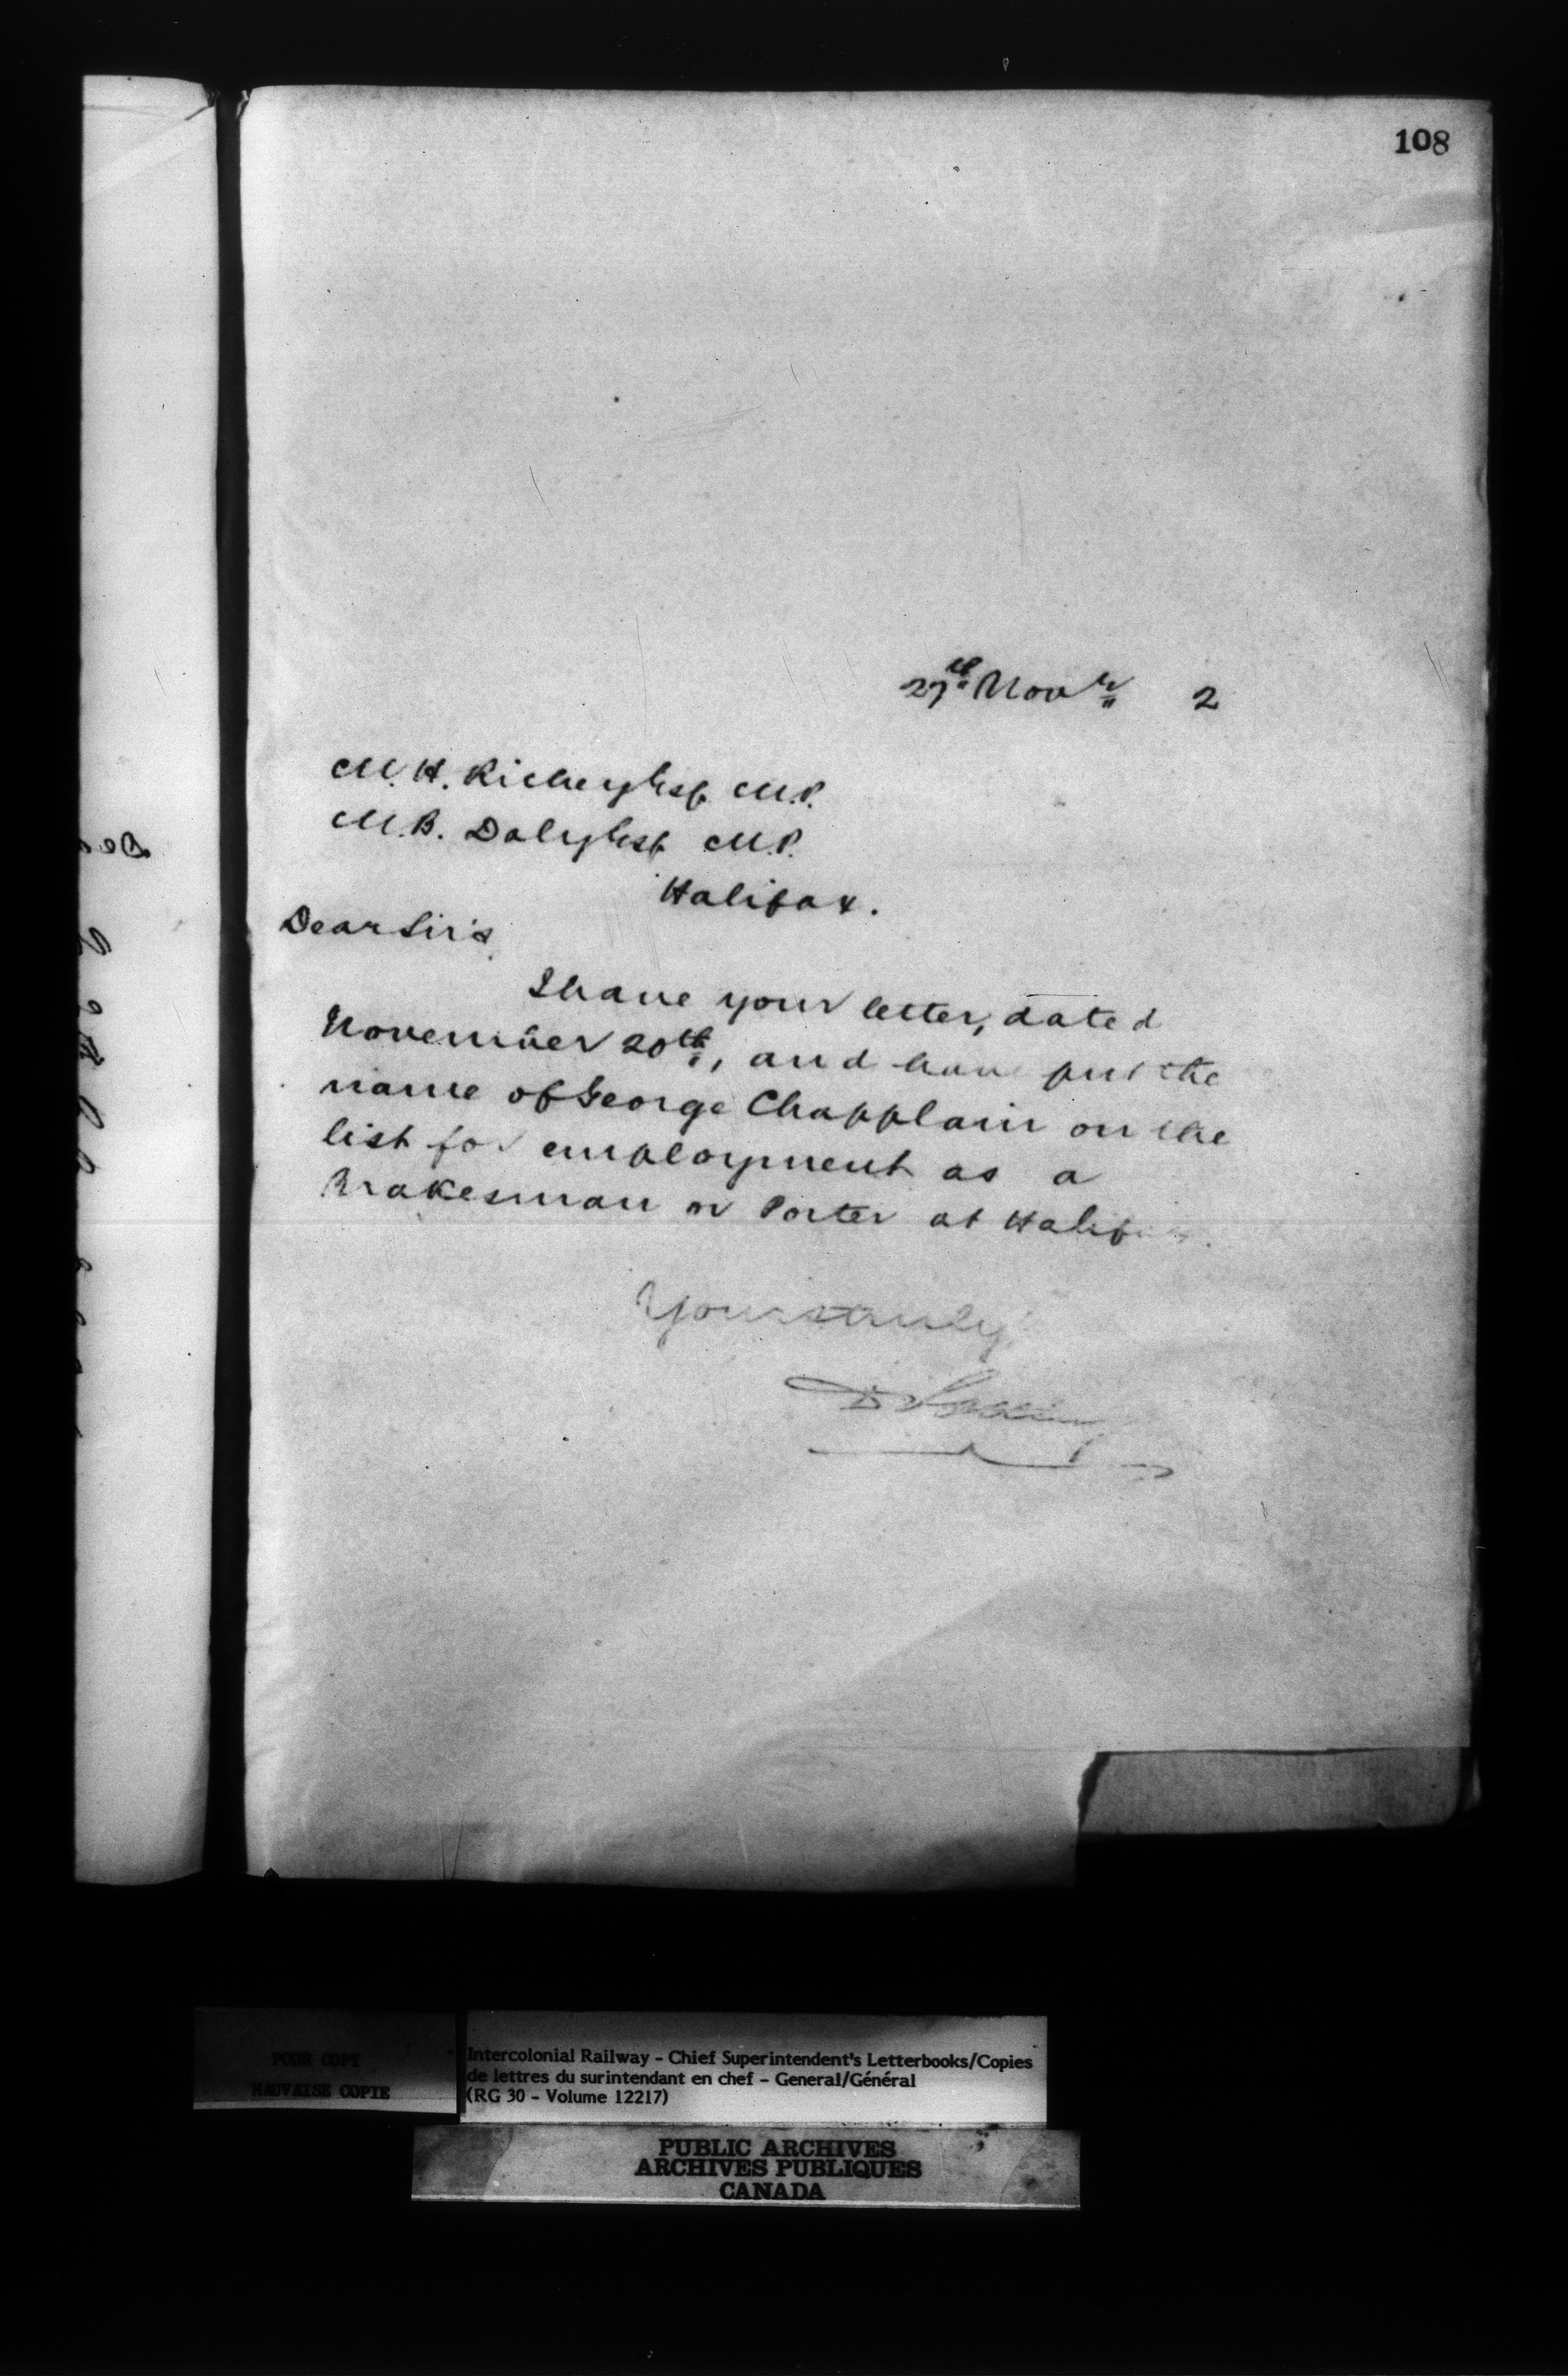 108
27th Novr 2
M. H. Richey Esq. M.P.
M. B. Daly Esq. M.P.
Halifax.
Dear Sir's
I have your letter, dated
November 20th, and have put the
name of George Chapplain on the
list for employment as a
Brakesman or Porter at Halifax.
Yours truly
POOR COPY
MAUVAISE COPIE
Intercolonial Railway - Chief Superintendent's Letterbooks/Copies
de lettres du surintendant en chef - General/Général
(RG 30 - Volume 12217)
PUBLIC ARCHIVES
ARCHIVES PUBLIQUES
CANADA